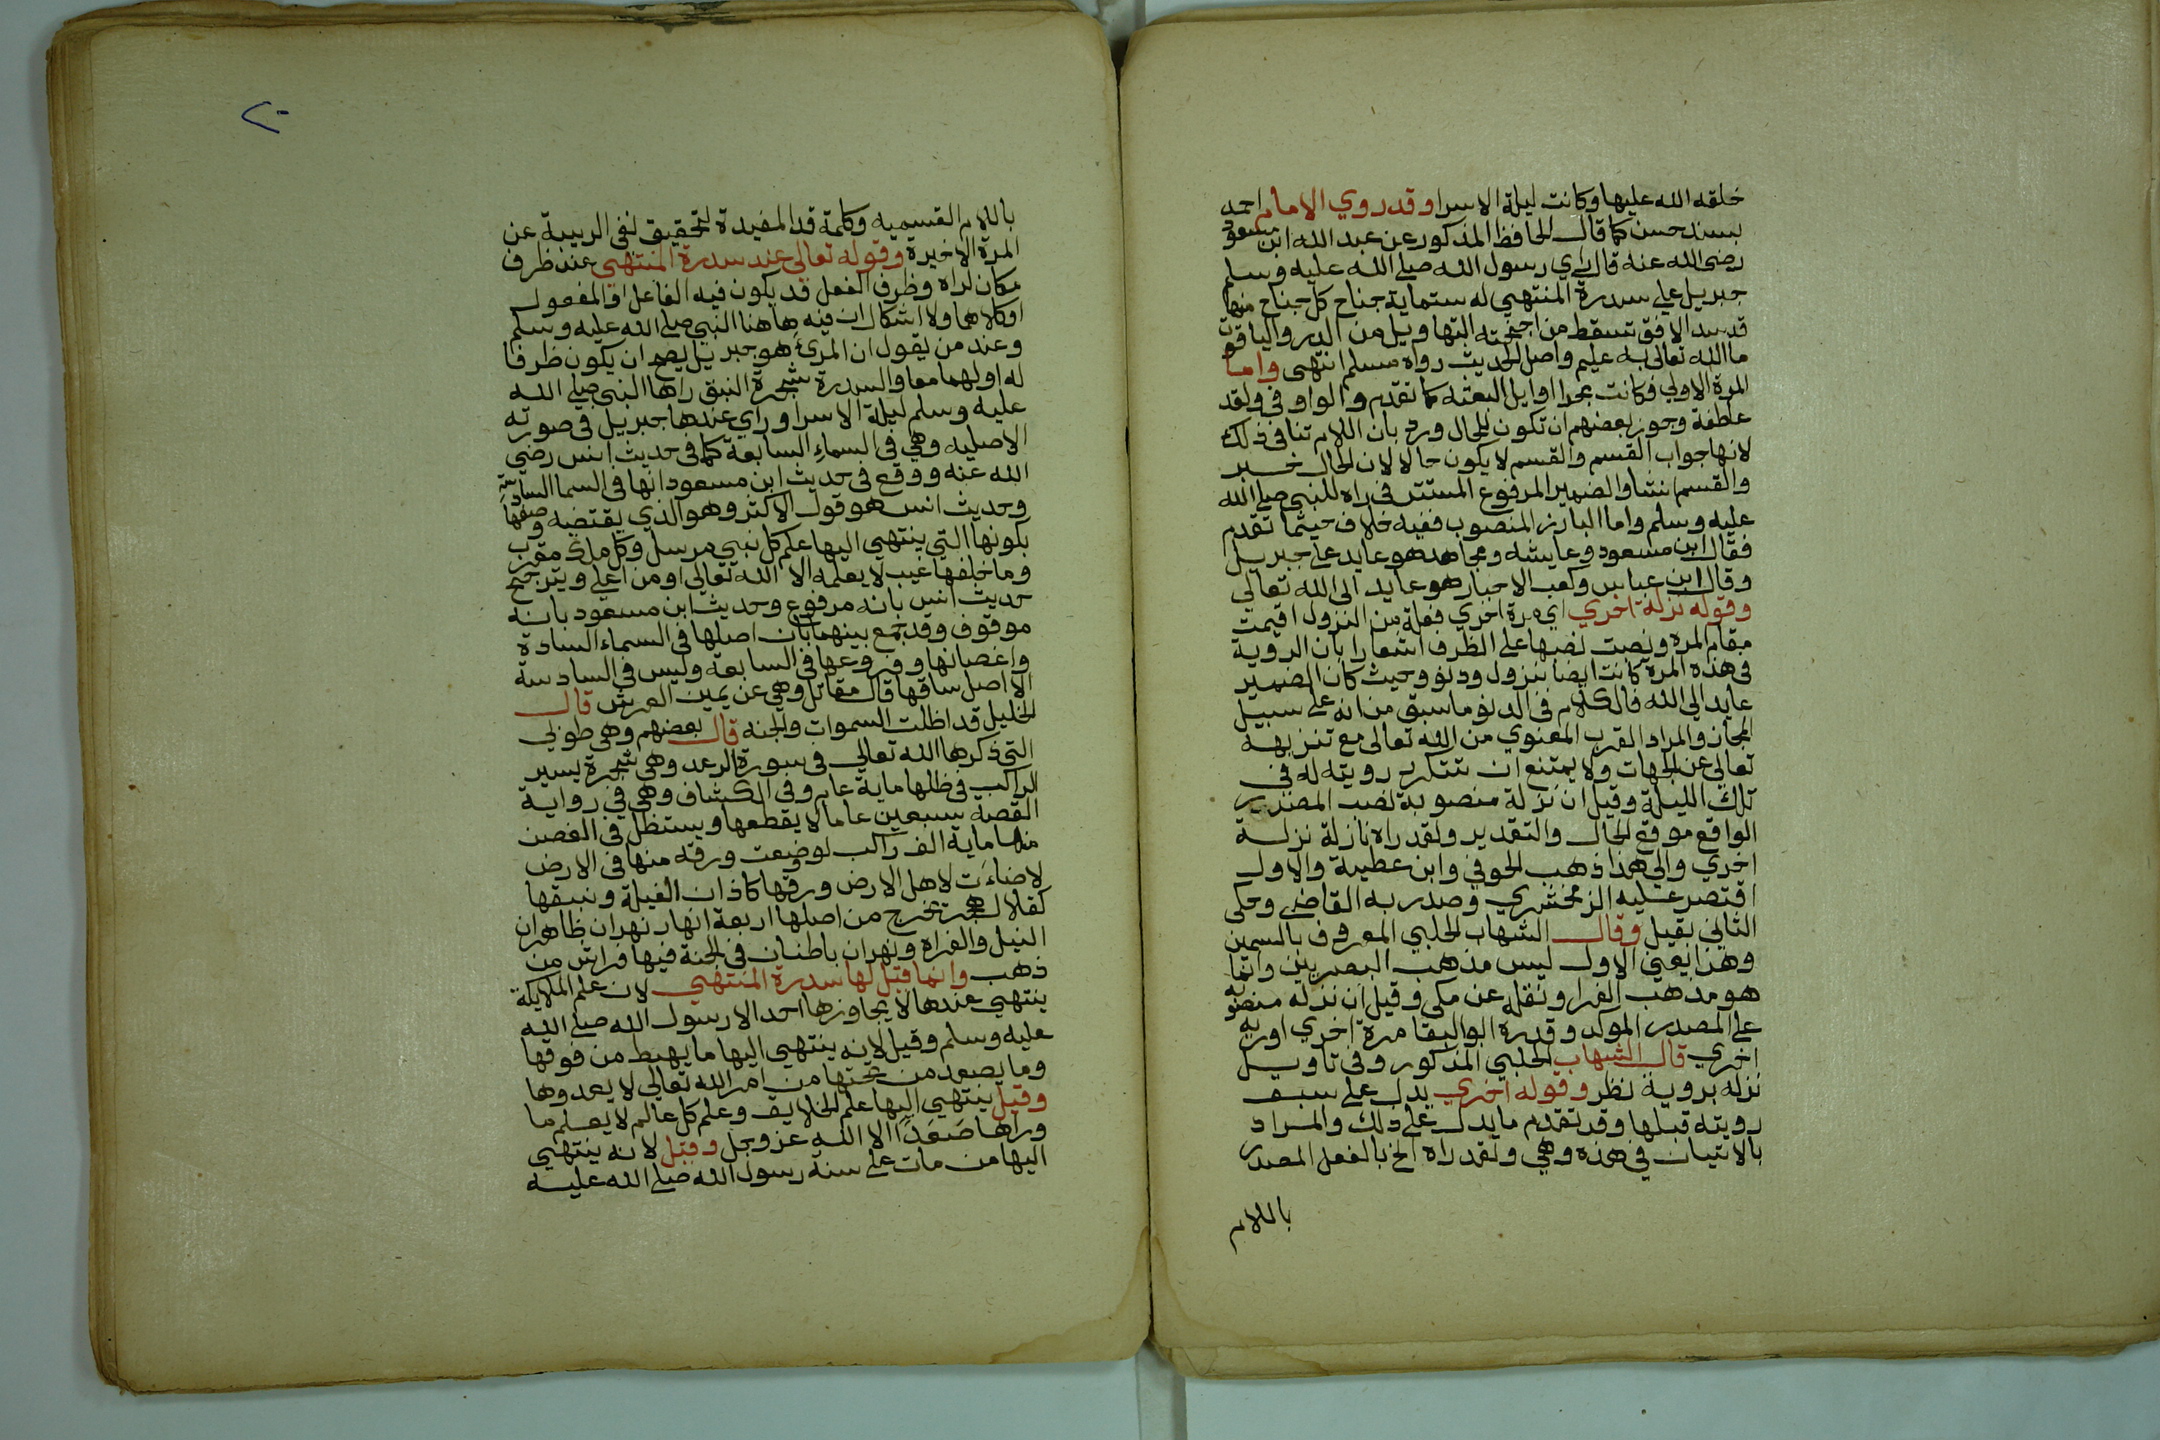 خلقه الله عليها وكانت ليلة الاسرا وقد روي الامام احمد
بسند حسن كما قال الحافظ المذكور عن عبد الله ابن مسعود
رضي الله عنه قال راي رسول الله صلى الله عليه وسلم
جبريل على سدرة المنتهي له ستماية جناح كل جناح منها
قد سد الافق تسقط من اجنحته التهاويل من الدر والياقوت
ما الله تعالى به عليم واصل الحديث رواه مسلم انتهى واما
المرة الاولي فكانت بحرا اوايل البعثه كما تقدم والواو في ولقد
عاطفة وجوز بعضهم ان تكون للحال ورد بان اللام تنافي ذلك
لانها جواب القسم والقسم لا يكون حالا لان الحال خبر
والقسم انشا والضمير المرفوع المستتر في راه للنبي صلى الله
عليه وسلم واما البارز المنصوب ففيه خلاف حيثما تقدم
فقال ابن مسعود وعايشه ومجاهد هو عايد على جبريل
وقال ابن عباس وكعب الاحبار هو عايد الى الله تعالى
وقوله نزلة اخري اي مرة اخري فعلة من النزول اقيمت
مقام المره ونصبت نصبها على الظرف اشعارا بان الروية
في هذه المرة كانت ايضا بنزول ودنو وحيث كان الضمير
عايد الى الله فالكلام في الدنو ما سبق من انه على سبيل
المجاز والمراد القرب المعنوي من الله تعالى مع تنزيهه
تعالى عن الجهات ولا يمتنع ان تتكرر رويته له في
تلك الليلة وقيل ان نزلة منصوبة نصب المصدر
الواقع موقع الحال والتقدير ولقد راه نازلة نزلة
اخري والي هذا ذهب الحوفي وابن عطية والاول
اقتصر عليه الزمخشري وصدر به القاضي وحكى
الثاني بقيل وقال الشهاب الحلبي المعروف بالسمين
وهذا يعني الاول ليس مذهب البصريين وانما
هو مذهب الفرا ونقله عن مكي وقيل ان نزله منصوبه
على المصدر الموكد وقدره ابو البقا مرة اخري او رية
اخري قال الشهاب الحلبي المذكور وفي تاويل
نزله بروية نظر وقوله اخري يدل على سبق
رويته قبلها وقد تقدم ما يدل على ذلك والمراد
بالاتيان في هذه وهي ولقد راه الخ بالفعل المصدر
باللام
باللام القسميه وكلمة قد المفيدة لتحقيق لنفي الريبة عن
المرة الاخيرة وقوله تعالى عند سدرة المنتهي عند ظرف
مكان لراه وظرف الفعل قد يكون فيه الفاعل او المفعول
او كلاهما ولا اشكال ان فيه هاهنا النبي صلى الله عليه وسلم
وعند من يقول ان المرئ هو جبريل يصح ان يكون ظرفا
له او لهما معا والسدرة شجرة النبق راها النبي صلى الله
عليه وسلم ليلة الاسرا وراي عندها جبريل في صورته
الاصليه وهي في السماء السابعة كما في حديث انس رضي
الله عنه ووقع في حديث ابن مسعود انها في السما السادسة
وحديث انس هو قول الاكثر وهو الذي يقتضيه وصفها
بكونها التي ينتهي اليها علم كل نبي مرسل وكل ملك مقرب
وما خلفها غيب لا يعلمه الا الله تعالى او من اعلي ويترجح
حديث انس بانه مرفوع وحديث ابن مسعود بانه
موقوف وقد جمع بينهما بان اصلها في السماء السادة
واغصانها وفروعها في السابعة وليس في السادسة
الا اصل ساقها قال مقاتل وهي عن يمين العرش قال
الخليل قد اظلت السموات والجنه قال بعضهم وهي طوبى
التي ذكرها الله تعالى في سورة الرعد وهي شجرة يسير
الراكب في ظلها ماية عام وفي الكشاف وهي في رواية
القصة سبعين عاما لا يقطعها ويستظل في الغصن
منها ماية الف راكب لو وضعت ورقه منها في الارض
لاضاءت لاهل الارض ورقها كاذان الفيلة ونبقها
كقلال هجر تخرج من اصلها اربعة انهار نهران ظاهران
النيل والفراة ونهران باطنان في الجنة فيها فراش من
ذهب وانما قيل لها سدرة المنتهي لان علم الملايكة
ينتهي عندها لا يجاوزها احد الا رسول الله صلى الله
عليه وسلم وقيل لانه ينتهي اليها ما يهبط من فوقها
وما يصعد من تحتها من امر الله تعالى لا يعدوها
وقيل ينتهي اليها علم الخلايق وعلم كل عالم لا يعلم ما
وراها صَعَدًا الا الله عز وجل وقيل لانه ينتهي
اليها من مات على سنة رسول الله صلى الله عليه